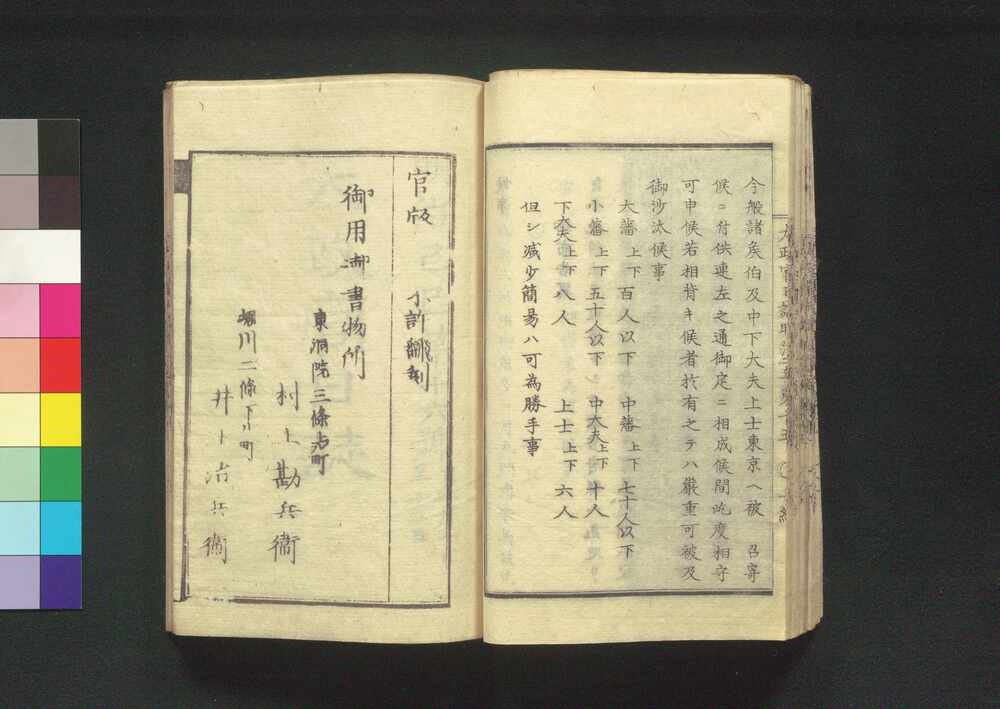 今般諸矦伯及中下大夫上士東京ヘ被 召寄
候ニ付供連左之通御定ニ相成候間屹度相守
可申候若相背キ候者於有之テハ嚴重可被及
御沙汰候事
大藩 上下 百人以下 中藩 上下 七十人以下
小藩 上下 五十人以下 中大夫 上下 十人
下大夫 上下 八人 上士 上下 六人
但シ減少簡易ハ可為勝手事
官版 不許翻刻
御用御書物所
東洞院三條上町
村上勘兵衞
堀川二條下ル町
井上治兵衞